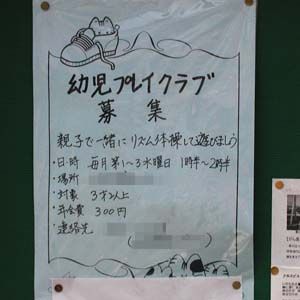 幼児プレイクラブ
募集
親子で一緒にリズム体操して遊びましょう
・日・時 毎月第1～3水曜日 1時半～2時半
・場所
・対象 3才以上
・年会費 300円
・連絡先